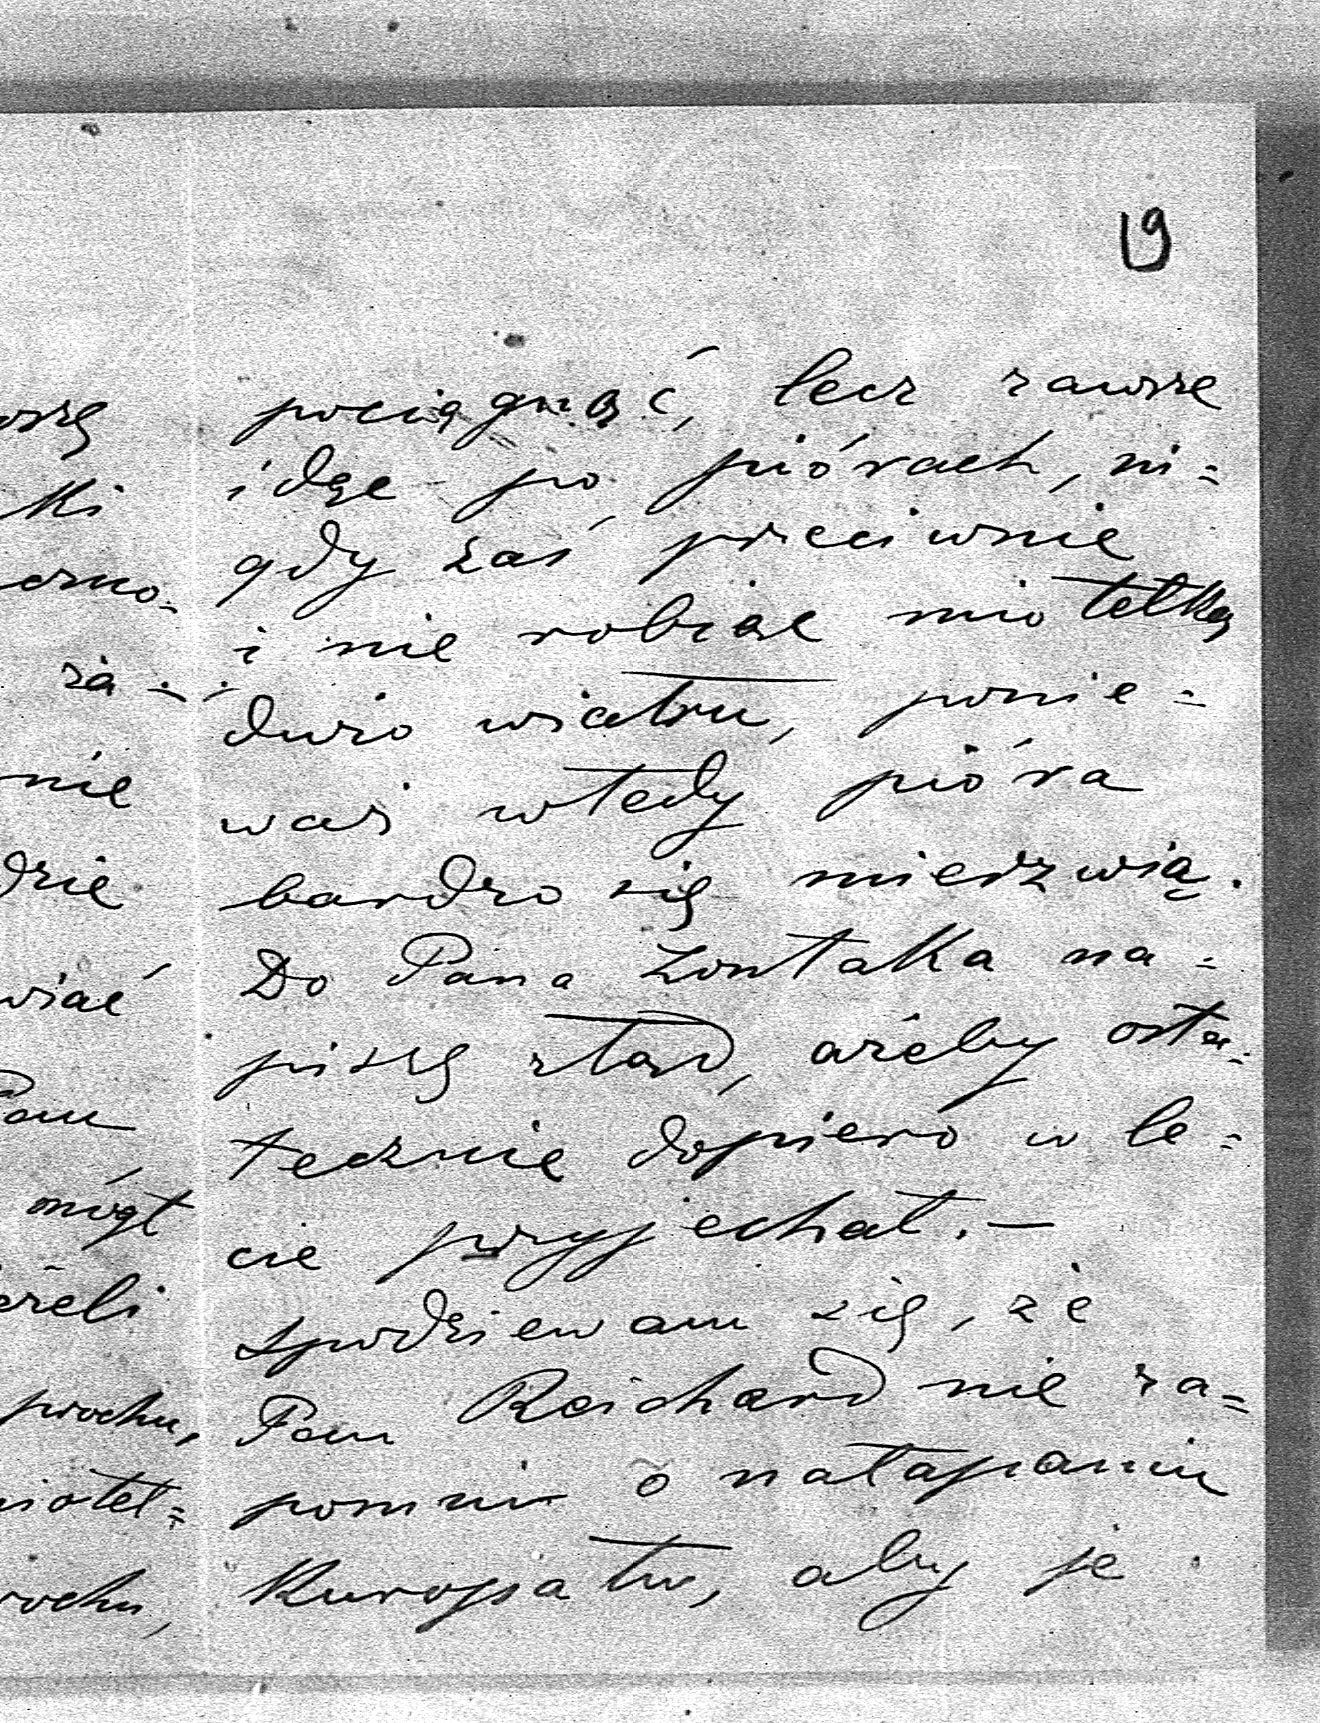 19
pociągnąć, lecz zawsze
idąc po piórach, ni=
gdy zaś przeciwnie
i nie robiąc miotełką
dużo wiatru, ponie=
waż wtedy pióra
bardzo się mierzwią.
Do Pana Lontaka na=
piszę ztąd, ażeby osta=
tecznie dopiero w le=
cie przyjechał. —
Spodziewam się, że
Pan Reichard nie za=
pomni o nałapaniu
Kuropatw, aby je
ki
za=
nie
dzie
Pan
mógł
prochu,